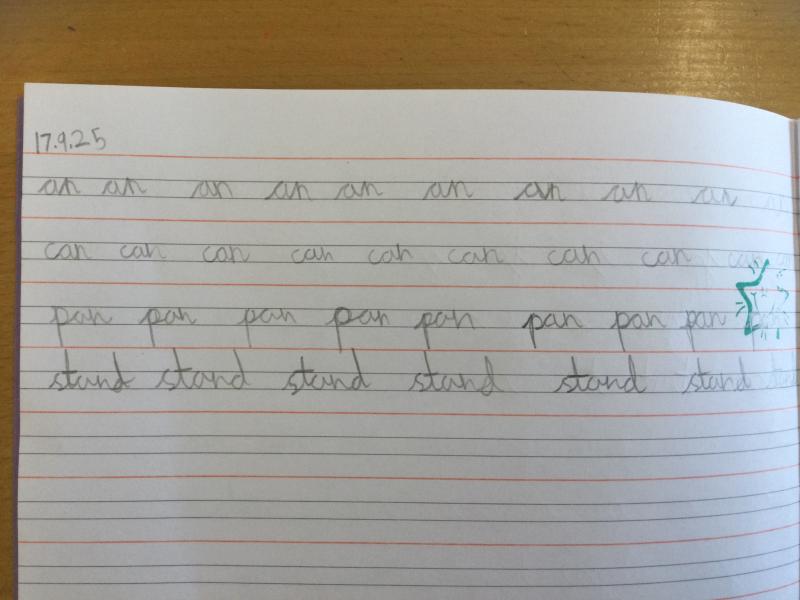 17.9.25
an an an an an an an an an
can can can can can can can can can
pan pan pan pan pan pan pan pan
stand stand stand stand stand stand